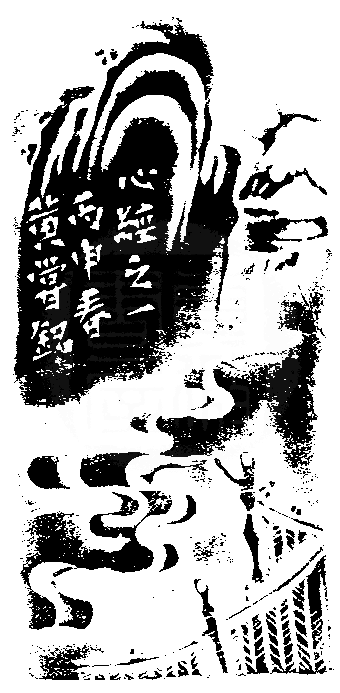 心經之一
丙申春
黃嘗銘